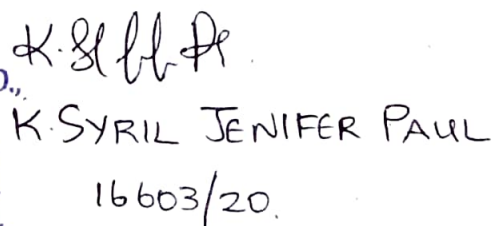 K.
K. SYRIL JENIFER PAUL
16603/20.